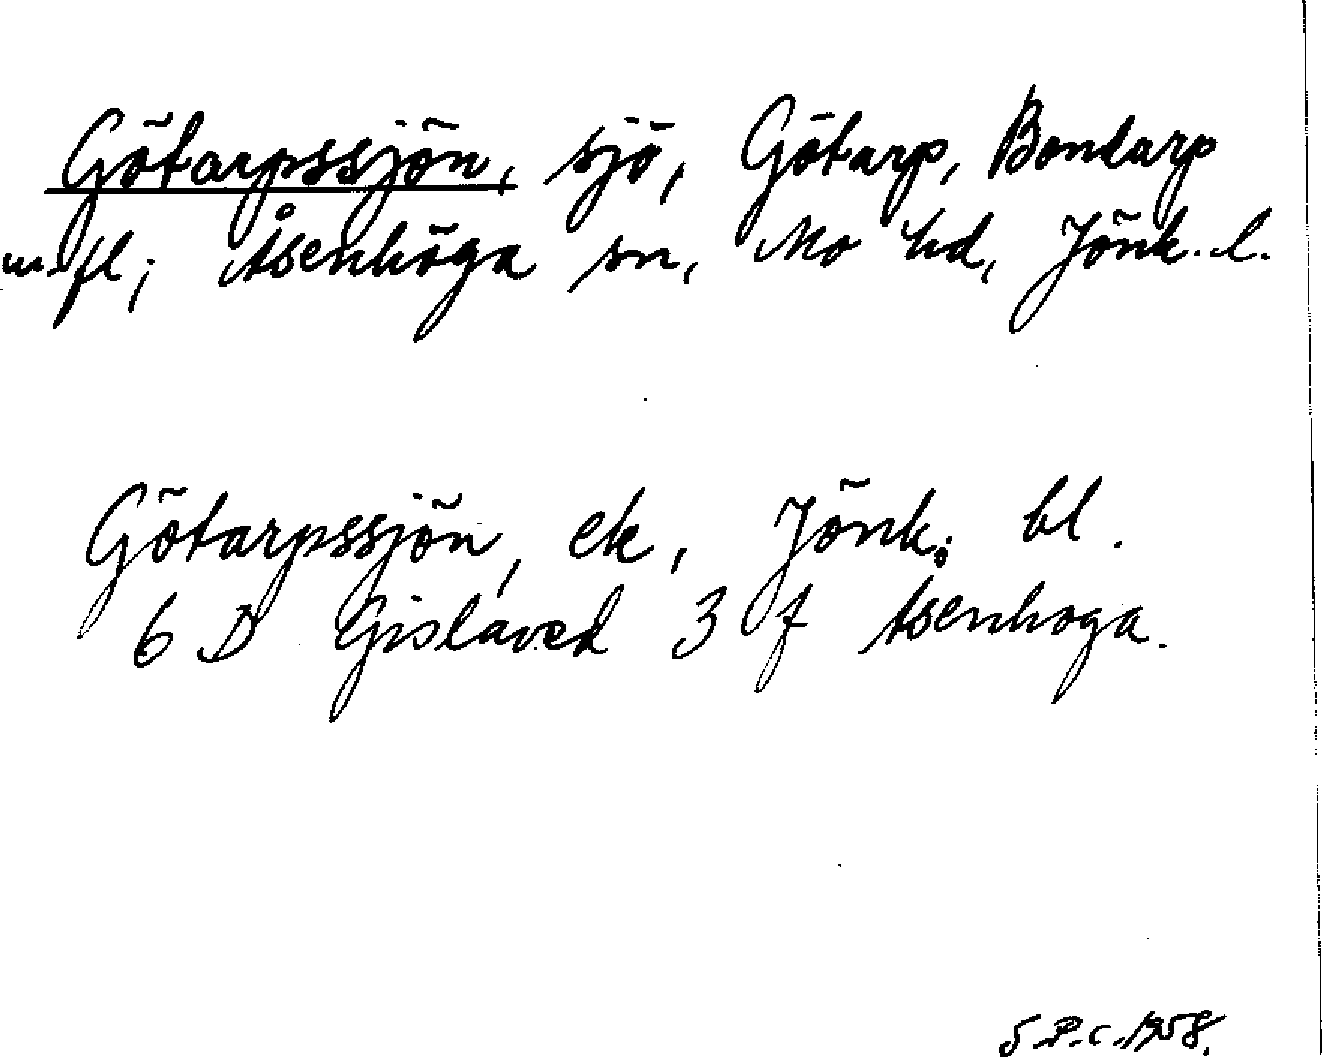 Götarpssjön, sjö, Götarp, Bondarp
m.fl; Åsenhöga sn, Mo hd, Jönk. l.
Götarpssjön, ek, Jönk; bl.
6 D Gislaved 3 f Åsenhoga.
S.P.C. 1958.